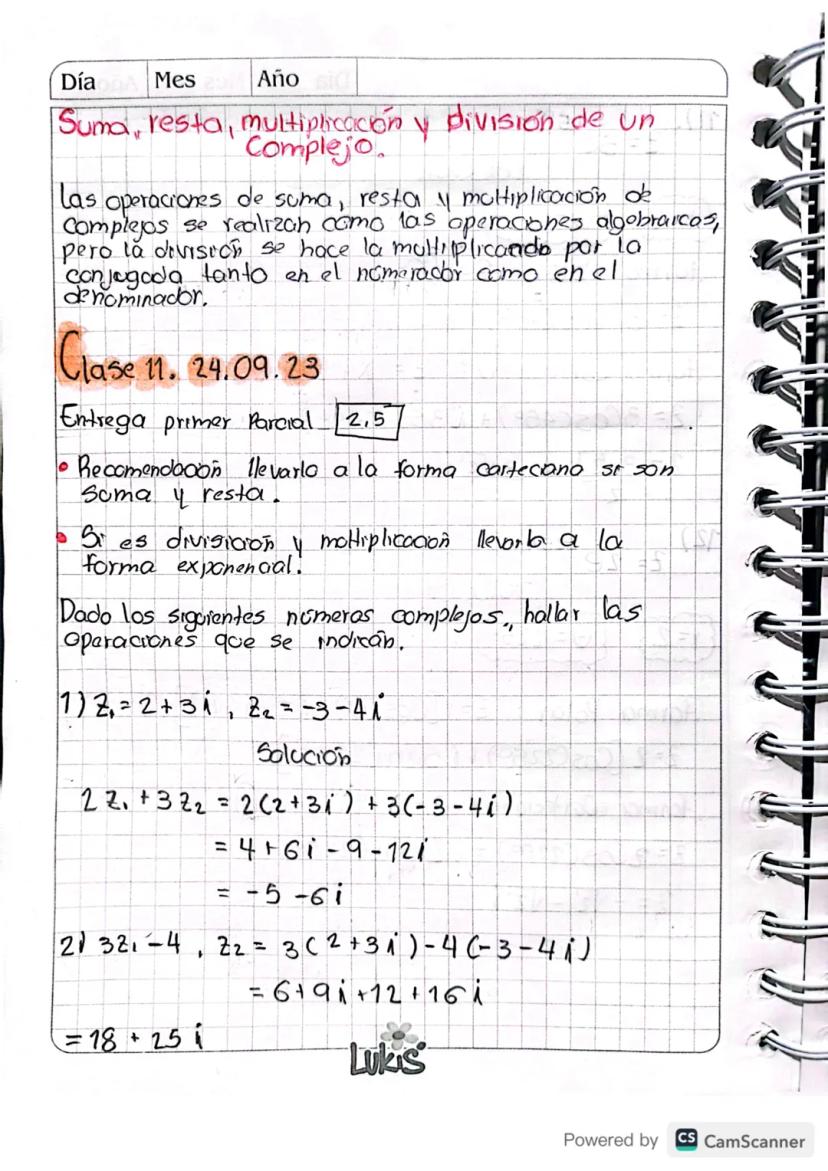 Día Mes Año
Suma, resta, multiplicación y división de un
Complejo.
Las operaciones de suma, resta y multiplicación de
complejos se realizan como las operaciones algebraicas,
pero la división se hace la multiplicando por la
conjugada tanto en el numerador como en el
denominador.
Clase 11. 24.09.23
Entrega primer Parcial 2,5
• Recomendación llevarlo a la forma carteciano si son
suma y resta.
• Si es división y multiplicación llevarlo a la
forma exponencial.
Dado los siguientes números complejos, hallar las
operaciones que se indican.
1) Z₁ = 2 + 3i, Z₂ = -3 - 4i
Solución
2Z₁ + 3Z₂ = 2(2+3i) + 3(-3-4i)
= 4 + 6i - 9 - 12i
= -5 - 6i
2) 3Z₁ - 4, Z₂ = 3(2+3i) - 4(-3-4i)
= 6 + 9i + 12 + 16i
= 18 + 25i
Lukis
Powered by CS CamScanner